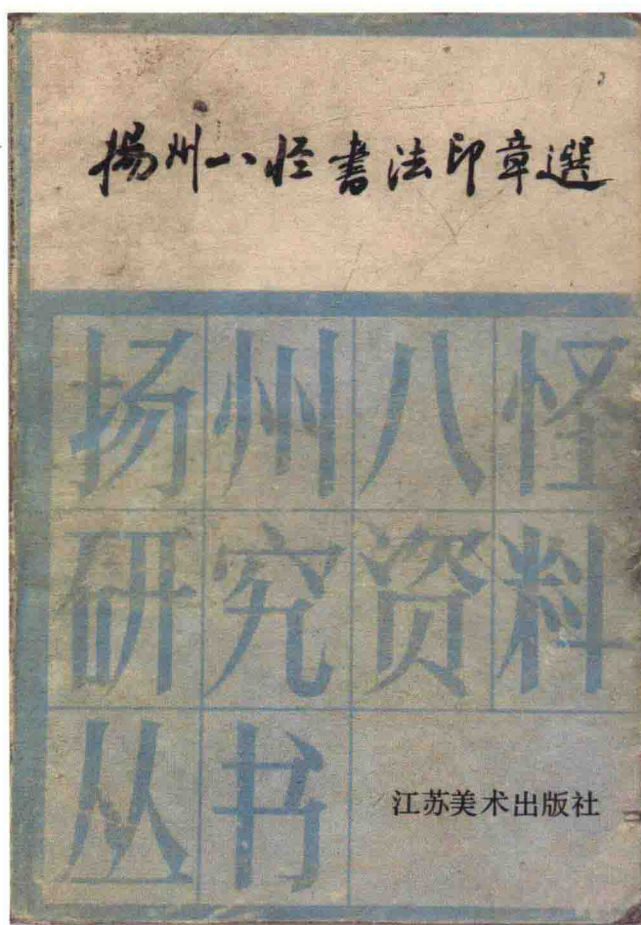 揚州八怪書法印章選
扬州八怪
研究资料
丛书
江苏美术出版社